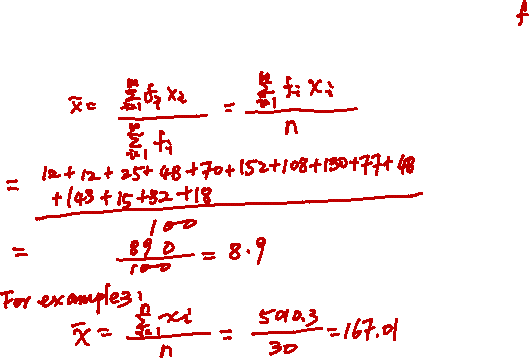 f
x̄ = Σ_{i=1}^{k} f_i x_i / Σ_{i=1}^{k} f_i = Σ_{i=1}^{k} f_i x_i / n
= 12+12+25+48+70+152+108+130+77+48
+143+15+32+18
100
= 890/100 = 8.9
For example3:
x̄ = Σ_{i=1}^{n} xi / n = 5010.3/30 = 167.01